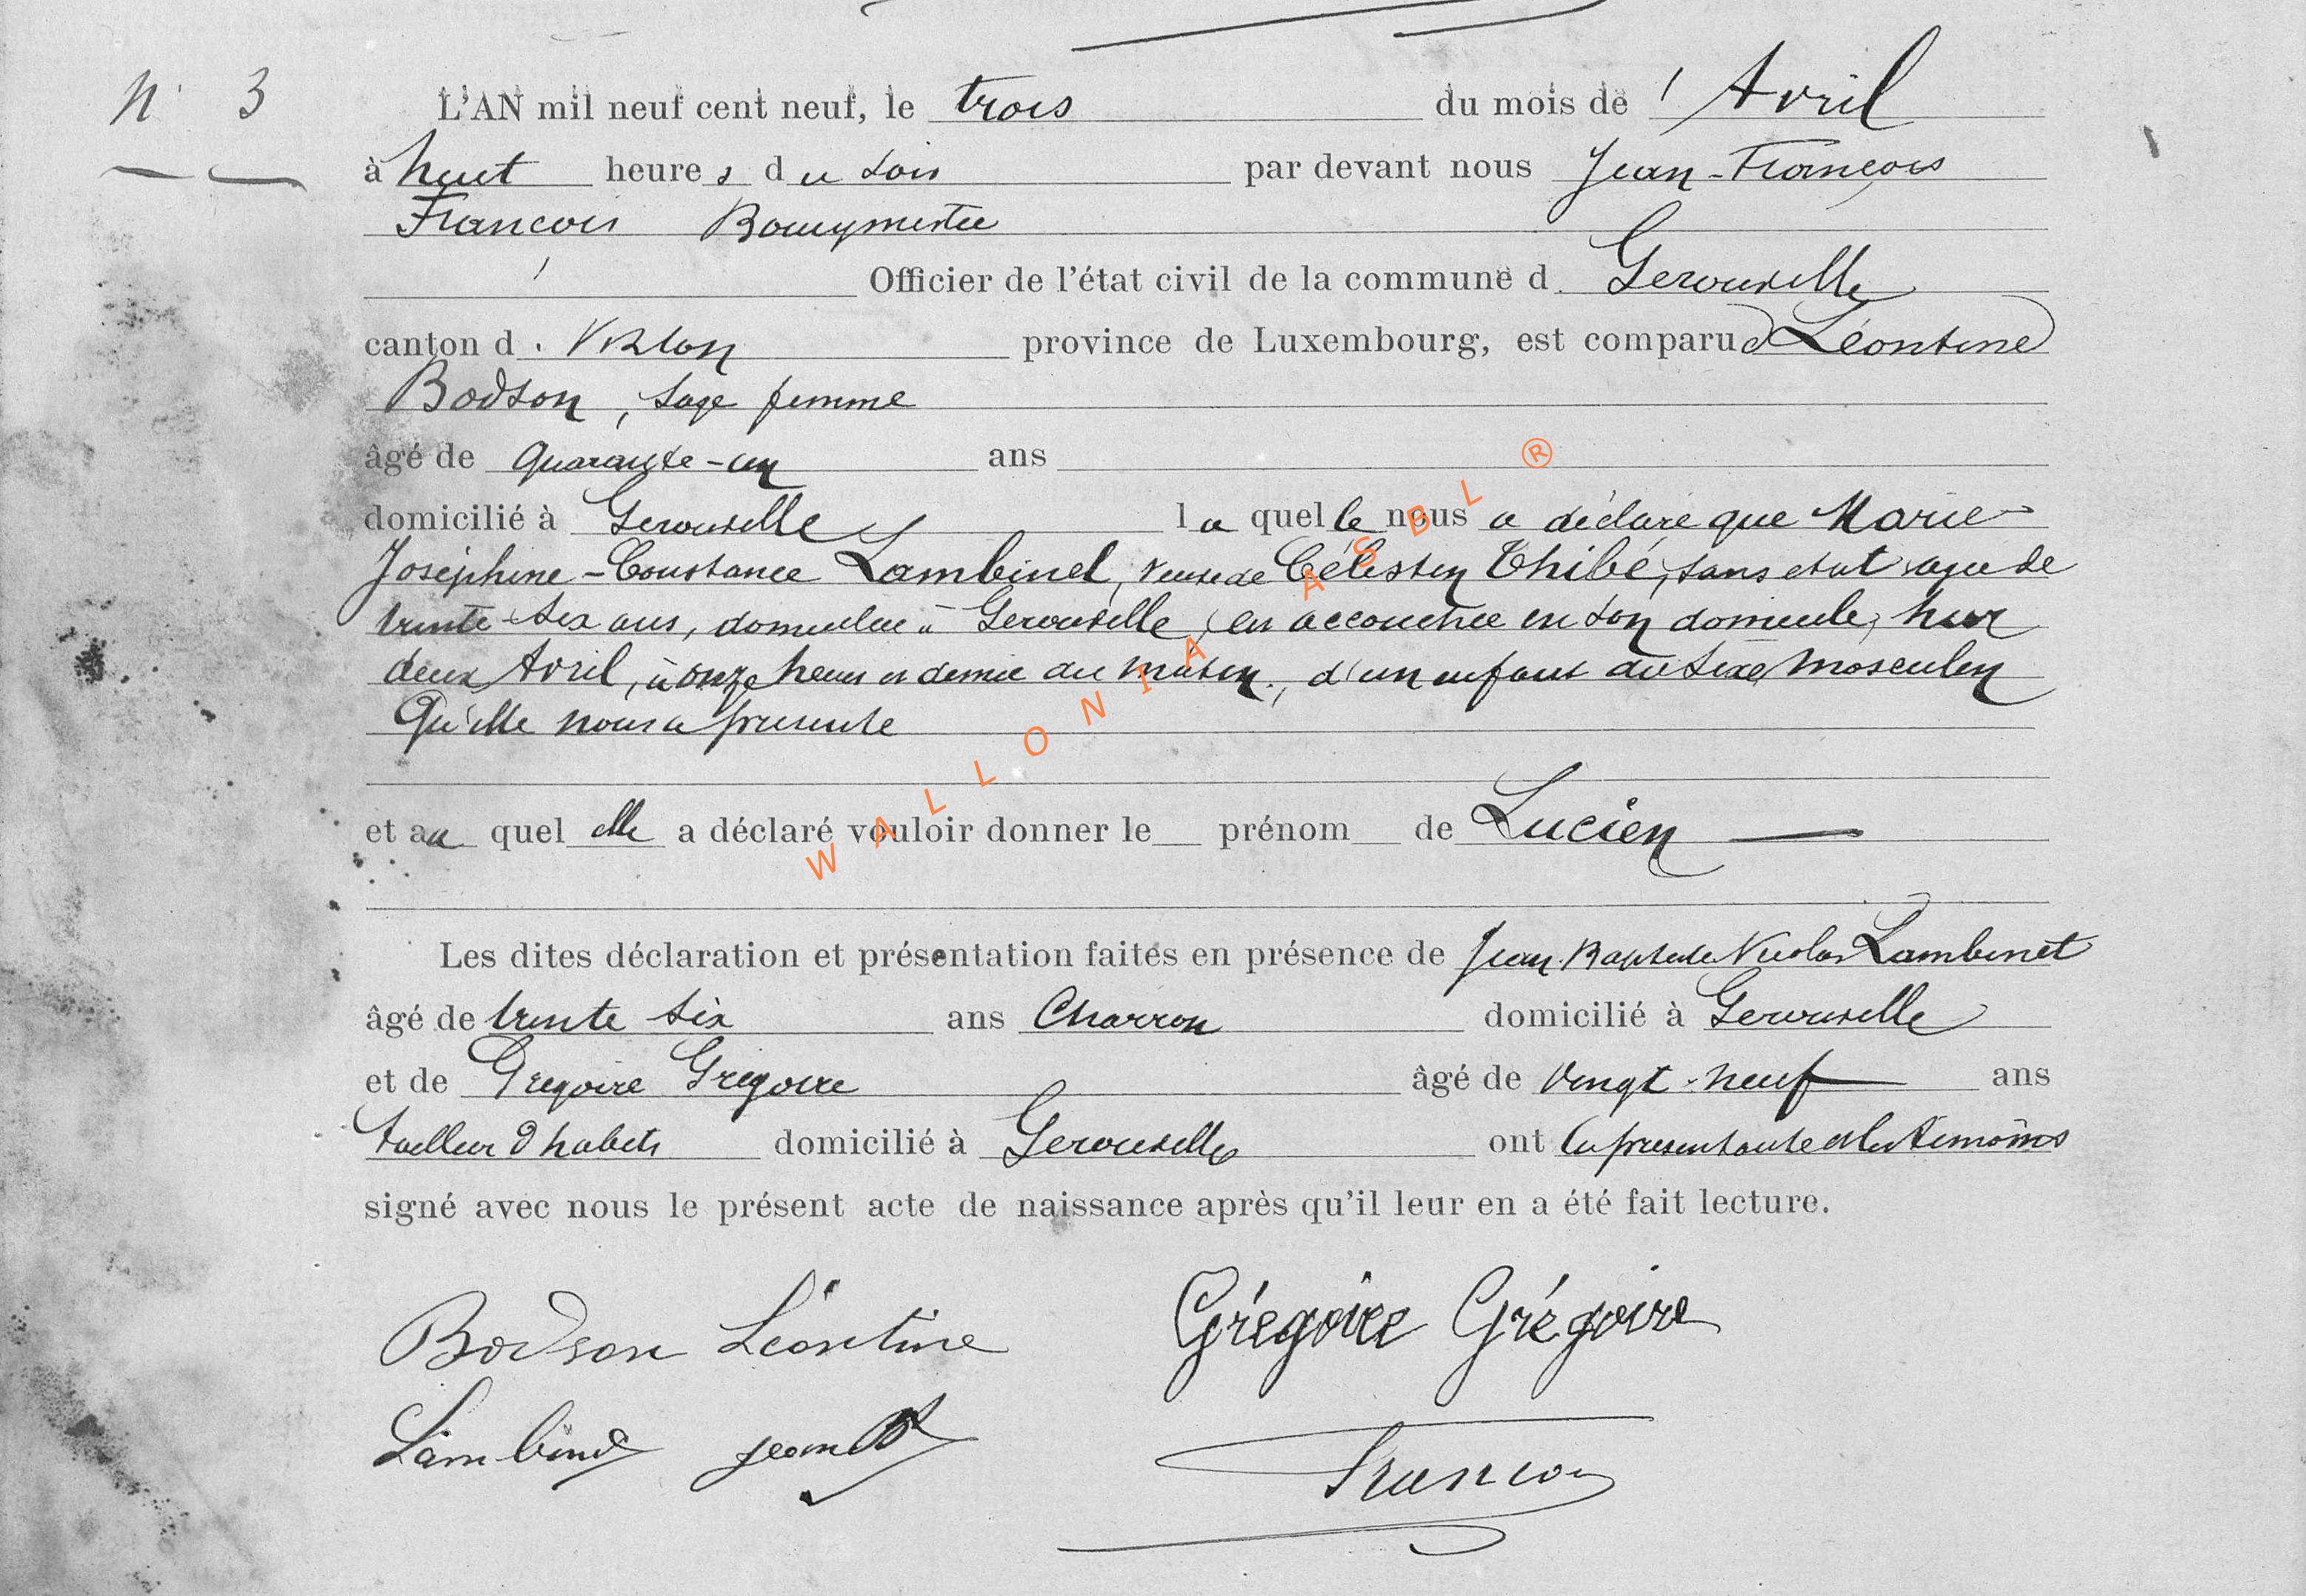 N° 3
L'AN mil neuf cent neuf, le trois du mois de Avril
à huit heures du soir par devant nous Jean-François
François Bourgmestre
Officier de l'état civil de la commune d Gerouville
canton d Virton province de Luxembourg, est comparue Léontine
Bodson, sage femme
âgé de quarante-un ans
domicilié à Gerouville laquelle nous a déclaré que Marie
Joséphine-Constance Lambinet, veuve de Célestin Thibé, sans état agée de
trente-six ans, domiciliée à Gerouville, est accouchée en son domicile, hier
deux Avril, à onze heures et demie du matin, d'un enfant du sexe masculin
Qu'elle nous a présenté
et au quel elle a déclaré vouloir donner le prénom de Lucien
Les dites déclaration et présentation faites en présence de Jean Baptiste Nicolas Lambinet
âgé de trente six ans Charron domicilié à Gerouville
et de Gregoire Grégoire âgé de vingt-neuf ans
tailleur d'habits domicilié à Gerouville ont la présentante et les témoins
signé avec nous le présent acte de naissance après qu'il leur en a été fait lecture.
Bodson Léontine Grégoire Grégoire
Lambinet Jean Bt François
WALLONIA ASBL ®